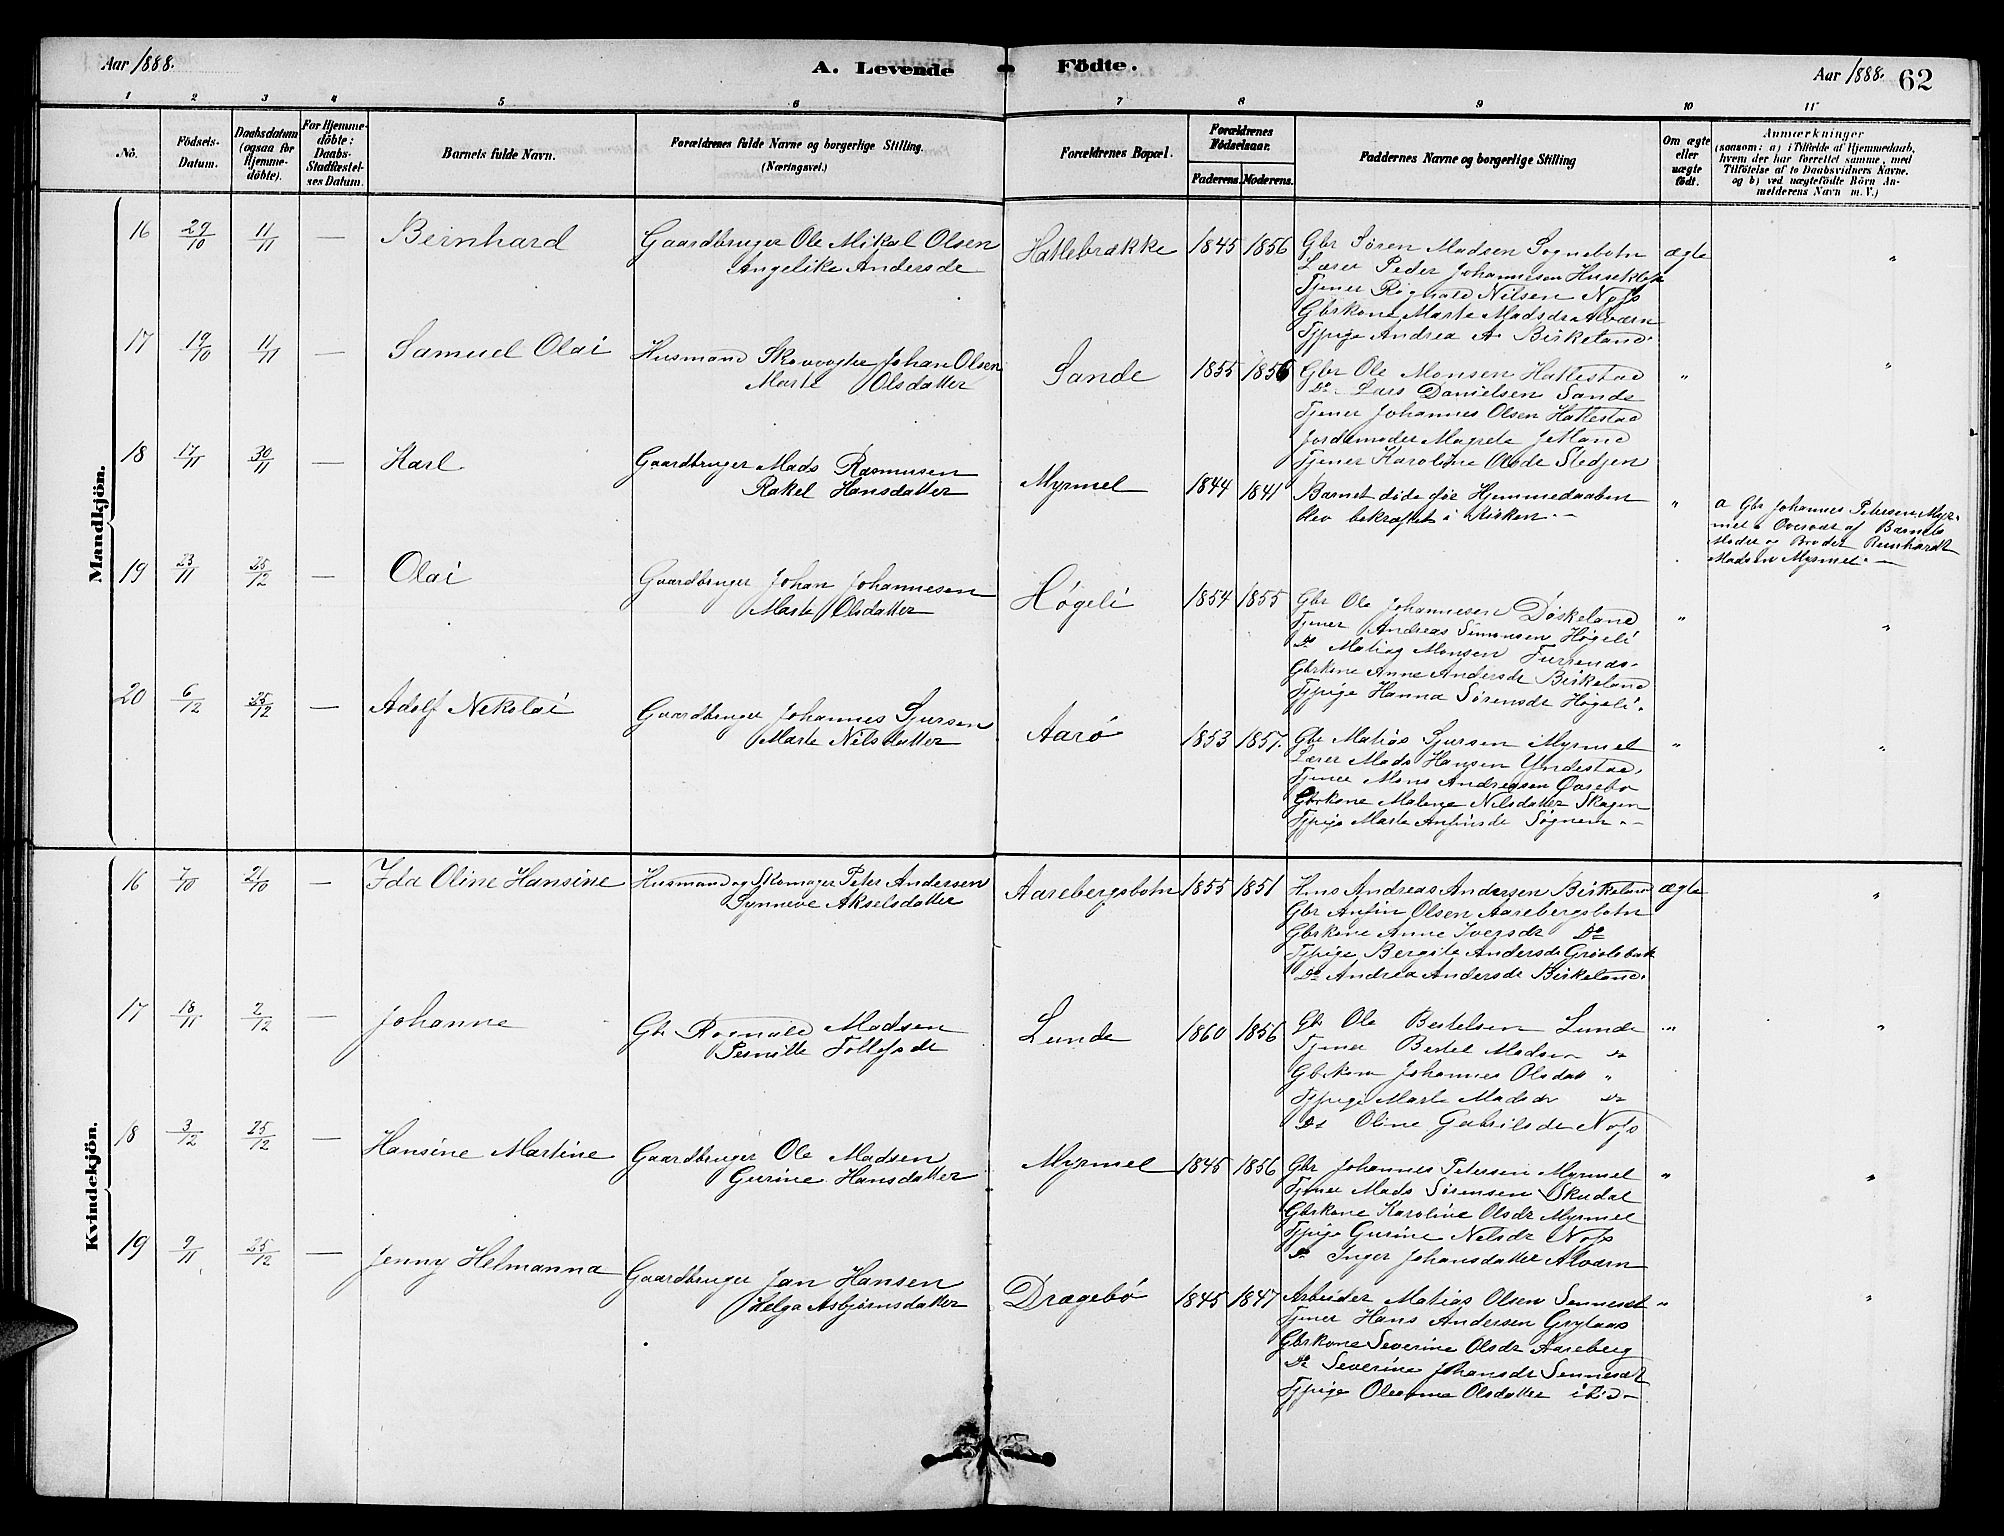 Aar 1888.
A. Levende
Födte.
Aar 1888.
62
1 2 3 4 5 6 7 8 9 10 11
No.
Födsels-Datum.
Daabsdatum (ogsaa for Hjemme-döbte).
For Hjemme-döbte: Daabs-Stadfæstel-ses Datum.
Barnets fulde Navn.
Forældrenes fulde Navne og borgerlige Stilling. (Næringsvei.)
Forældrenes Bopæl.
Forældrenes Födselsaar.
Faderens. Moderens.
Faddernes Navne og borgerlige Stilling
Om ægte eller uægte födt.
Anmærkninger
(saasom: a) i Tilfælde af Hjemmedaab, hvem der har forrettet samme, med Tilföielse af to Daabsvidners Navne, og b) ved uægtefödte Börn An-melderens Navn m. V.)
Mandkjön.
16 29/10 11/11 — Bernhard
Gaardbruger Ole Mikal Olsen
Angelike Andersde
Hatlebrække 1845 1856
Gbr Søren Madsen Sognebotn
Lærer Peder Johannesen Huseklep
Tjener Rognald Nilsen Nofs
Gbrkone Marte Madsdr Alværn
Tjpige Andrea A Birkeland.
ægte "
17 19/10 11/11 — Samuel Olai
Husmand Skovvogter Johan Olsen
Marte Olsdatter
Sande 1855 1856
Gbr Ole Monsen Hattestad
Do Lars Danielsen Sande
Tjener Johannes Olsen Hattestad
Jordemoder Magrete
Tjener Karoline Olsde Stedjen
" "
18 17/11 30/11 — Karl
Gaardbruger Mads Rasmusen
Rakel Hansdatter
Myrmel 1844 1841
Barnet døde før Hjemmedaaben
blev bekræftet i Kirken. —
"
a Gbr Johannes Petersen Myr-
mel Overvær af Barnets
Moder o Broder Reinhardt
Madsen Myrmel. —
19 23/11 25/12 — Olai
Gaardbruger Johan Johannesen
Marte Olsdatter
Høgeli 1854 1855
Gbr Ole Johannesen Døskeland
Tjener Andreas Simonsen Høgeli
Do Matias Monsen Furrends.
Gbrkone Anne Andersde Birkeland
Tjpige Hanna Sørensde Høgeli.
" "
20 6/12 25/12 — Adolf Nikolai
Gaardbruger Johannes Sjursen
Marte Nilsdatter
Aarö 1853 1857.
Gbr Matias Sjursen Myrmel
Lærer Mads Hansen Yndestad,
Tjener Mons Andreasen
Gbrkone Malene Nilsdatter Skagen
Tjpige Marte Anfinsde Sognem. —
" "
Kvindekjön.
16 7/10 21/10 — Ida Oline Hansine
Husmand og Skomager Peter Andersen
Synneve Akselsdatter
Aarebergsbotn 1855 1851
Hms Andreas Andersen Birkeland
Gbr Anfin Olsen Aarebergsbotn
Gbrkone Anne Iversdr Do
Tjpige Bergite Andersde
Do Andrea Andersdr Birkeland.
ægte "
17 18/11 2/12 — Johanne
Gbr Rognald Madsen
Pernille Tollefsdr
Lunde 1860 1856
Gbr Ole Bertelsen Lunde
Tjener Bertel Madsen do
Gbrkone Johannes Olsdatt "
Tjpige Marte Madsdr do
Do Oline Gabrilsde Nofs
" "
18 3/12 25/12 — Hansine Martine
Gaardbruger Ole Madsen
Gurine Hansdatter
Myrmel 1845 1856
Gbr Johannes Petersen Myrmel
Tjener Mads Sørensen Skudal
Gbrkone Karoline Olsdr Myrmel
Tjpige Gurine Nilsdr Nofs
Do Inger Johansdatter Alværn
" "
19 9/11 25/12 — Jenny Helmanna
Gaardbruger Jan Hansen
Helga Asbjørnsdatter
Dragebö 1845 1847
Arbeider Matias Olsen Sennesæt
Tjener Hans Andersen Grytaas
Gbrkone Severine Olsdr Aareberg
Do Severine Johansdr Sennesæt
Tjpige Oleanna Olsdatter —
" "